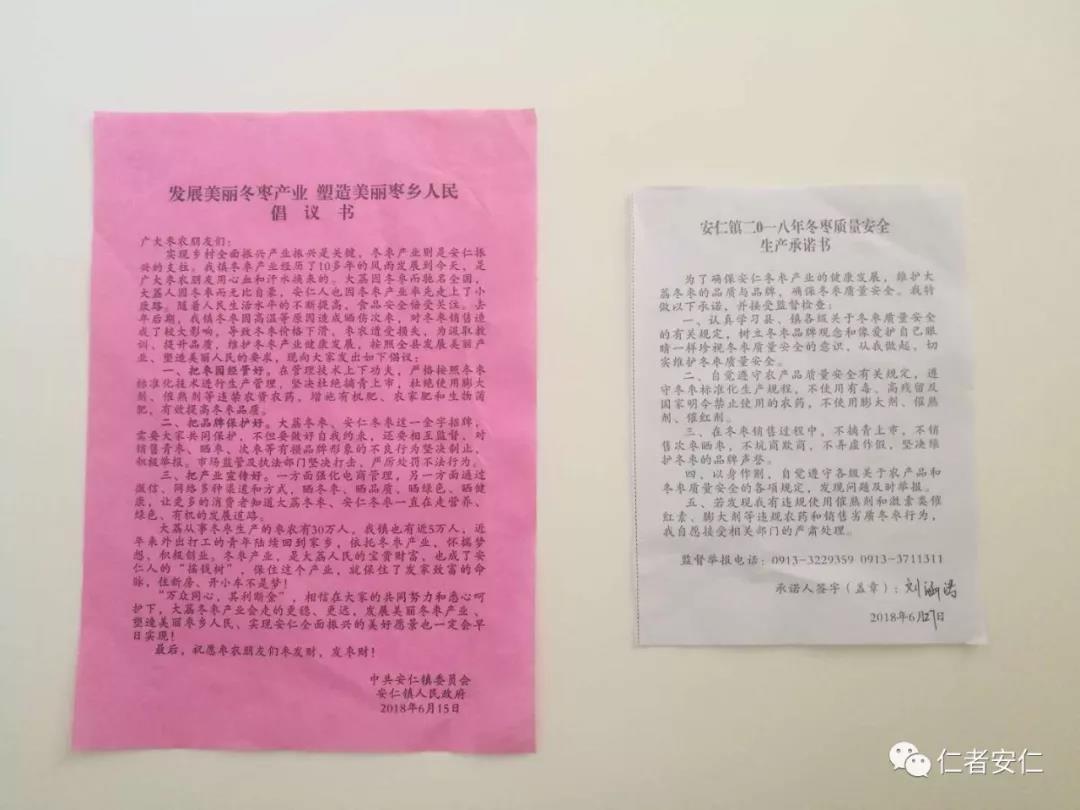 发展美丽冬枣产业 塑造美丽枣乡人民
倡 议 书
广大枣农朋友们：
实现乡村全面振兴产业振兴是关键，冬枣产业则是安仁振
兴的支柱。我镇冬枣产业经历了10多年的风雨发展到今天，是
广大枣农朋友用心血和汗水换来的。大荔因冬枣而驰名全国，
大荔人因冬枣而无比自豪，安仁人也因冬枣产业率先走上了小
康路。随着人民生活水平的不断提高，食品安全倍受关注。去
年后期，我镇冬枣因高温等原因造成晒伤次枣，对冬枣销售造
成了较大影响。导致冬枣价格下滑，枣农遭受损失，为汲取教
训、提升品质，维护冬枣产业健康发展，按照全县发展美丽产
业、塑造美丽人民的要求，现向大家发出如下倡议：
一、把枣园经管好。在管理技术上下功夫，严格按照冬枣
标准化技术进行生产管理，坚决杜绝摘青上市，杜绝使用膨大
剂、催熟剂等违禁农资农药，增施有机肥、农家肥和生物菌
肥，有效提高冬枣品质。
二、把品牌保护好。大荔冬枣、安仁冬枣这一金字招牌，
需要大家共同保护，不但要做好自我约束，还要相互监督，对
销售青枣、晒枣、次枣等有损品牌形象的不良行为坚决制止，
积极举报。市场监管及执法部门坚决打击，严厉处罚不法行为。
三、把产业宣传好。一方面强化电商管理，另一方面通过
微信、网络多种渠道和方式，晒冬枣、晒品质、晒绿色、晒健
康，让更多的消费者知道大荔冬枣、安仁冬枣一直在走营养、
绿色、有机的发展道路。
大荔从事冬枣生产的枣农有30万人，我镇也有近5万人，近
年来外出打工的青年陆续回到家乡，依托冬枣产业，怀揣梦
想、积极创业。冬枣产业，是大荔人民的宝贵财富，也成了安
仁人的“摇钱树”，保住这个产业，就保住了发家致富的命
脉，住新房、开小车不是梦！
“万众同心，其利断金”，相信在大家的共同努力和悉心呵
护下，大荔冬枣产业会走的更稳、更远，发展美丽冬枣产业、
塑造美丽枣乡人民、实现安仁全面振兴的美好愿景也一定会早
日实现！
最后，祝愿枣农朋友们枣发财，发枣财！
中共安仁镇委员会
安仁镇人民政府
2018年6月15日
安仁镇二0一八年冬枣质量安全
生产承诺书
为了确保安仁冬枣产业的健康发展，维护大
荔冬枣的品质与品牌，确保冬枣质量安全。我特
做以下承诺，并接受监督检查：
一、认真学习县、镇各级关于冬枣质量安全
的有关规定，树立冬枣品牌观念和像爱护自己眼
睛一样珍视冬枣质量安全的意识，从我做起，切
实维护冬枣质量安全。
二、自觉遵守农产品质量安全有关规定，遵
守冬枣标准化生产规程，不使用有毒、高残留及
国家明令禁止使用的农药，不使用膨大剂、催熟
剂、催红剂。
三、在冬枣销售过程中，不摘青上市，不销
售次枣晒枣，不坑商欺商，不弄虚作假，坚决维
护冬枣的品牌声誉。
四、以身作则，自觉遵守各级关于农产品和
冬枣质量安全的各项规定，发现问题及时举报。
五、若发现我有违规使用催熟剂和激素类催
红素、膨大剂等违规农药和销售劣质冬枣行为，
我自愿接受相关部门的严肃处理。
监督举报电话：0913-3229359 0913-3711311
承诺人签字（盖章）：刘
2018年6月27日
仁者安仁